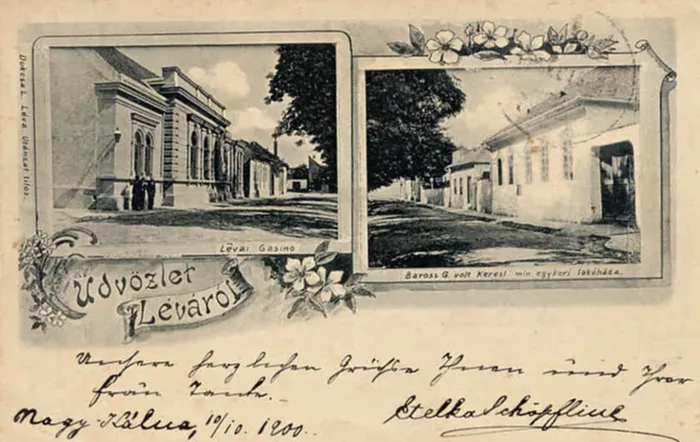 Dukesz L. Léva
Lévai Casino
Baross G. volt Keresk. min. egykori lakóháza.
Üdvözlet
Léváról
Unsere herzlichen Grüsse Ihnen und Ihrer
fräun Tante.
Nagy Kálna, 10/10. 1900.
Stelka Schöpflin